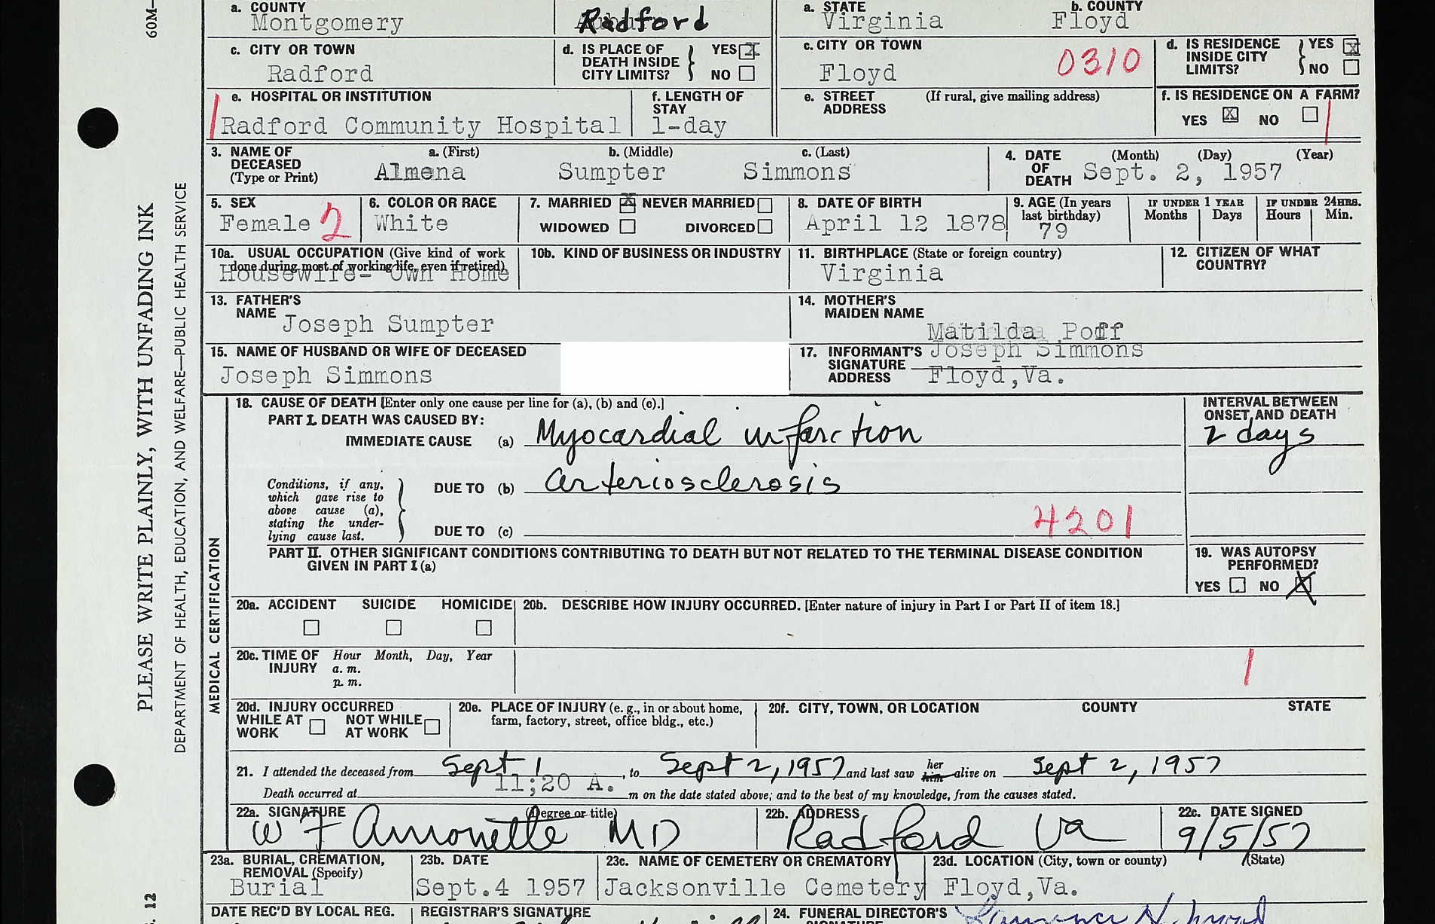 60M—
a. COUNTY
Montgomery
Radford
a. STATE
Virginia
b. COUNTY
Floyd
c. CITY OR TOWN
Radford
d. IS PLACE OF DEATH INSIDE CITY LIMITS? YES☒ NO ☐
c. CITY OR TOWN
Floyd
0310
d. IS RESIDENCE INSIDE CITY LIMITS? YES ☒ NO ☐
e. HOSPITAL OR INSTITUTION
Radford Community Hospital
f. LENGTH OF STAY
1-day
e. STREET ADDRESS (If rural, give mailing address)
f. IS RESIDENCE ON A FARM?
YES ☒ NO ☐
3. NAME OF DECEASED (Type or Print)
a. (First) b. (Middle) c. (Last)
Almena Sumpter Simmons
4. DATE OF DEATH (Month) (Day) (Year)
Sept. 2, 1957
5. SEX
Female 2
6. COLOR OR RACE
White
7. MARRIED ☒ NEVER MARRIED ☐
WIDOWED ☐ DIVORCED ☐
8. DATE OF BIRTH
April 12 1878
9. AGE (In years last birthday)
79
IF UNDER 1 YEAR
Months Days
IF UNDER 24HRS.
Hours Min.
10a. USUAL OCCUPATION (Give kind of work done during most of working life, even if retired)
Housewife- Own Home
10b. KIND OF BUSINESS OR INDUSTRY
11. BIRTHPLACE (State or foreign country)
Virginia
12. CITIZEN OF WHAT COUNTRY?
13. FATHER'S NAME
Joseph Sumpter
14. MOTHER'S MAIDEN NAME
Matilda Poff
15. NAME OF HUSBAND OR WIFE OF DECEASED
Joseph Simmons
17. INFORMANT'S SIGNATURE Joseph Simmons
ADDRESS Floyd,Va.
18. CAUSE OF DEATH [Enter only one cause per line for (a), (b) and (c).]
PART I. DEATH WAS CAUSED BY:
IMMEDIATE CAUSE (a) Myocardial infarction
INTERVAL BETWEEN ONSET, AND DEATH
2 days
Conditions, if any, which gave rise to above cause (a), stating the underlying cause last.
DUE TO (b) arteriosclerosis
DUE TO (c)
4201
PART II. OTHER SIGNIFICANT CONDITIONS CONTRIBUTING TO DEATH BUT NOT RELATED TO THE TERMINAL DISEASE CONDITION GIVEN IN PART I (a)
19. WAS AUTOPSY PERFORMED?
YES ☐ NO ☒
20a. ACCIDENT SUICIDE HOMICIDE
☐ ☐ ☐
20b. DESCRIBE HOW INJURY OCCURRED. [Enter nature of injury in Part I or Part II of item 18.]
20c. TIME OF INJURY Hour Month, Day, Year
a. m.
p. m.
20d. INJURY OCCURRED
WHILE AT WORK ☐ NOT WHILE AT WORK ☐
20e. PLACE OF INJURY (e. g., in or about home, farm, factory, street, office bldg., etc.)
20f. CITY, TOWN, OR LOCATION COUNTY STATE
21. I attended the deceased from Sept 1, to Sept 2, 1957 and last saw her him alive on Sept 2, 1957
Death occurred at 11;20 A. m on the date stated above; and to the best of my knowledge, from the causes stated.
22a. SIGNATURE (Degree or title)
W F Amonette MD
22b. ADDRESS
Radford Va
22c. DATE SIGNED
9/5/57
23a. BURIAL, CREMATION, REMOVAL (Specify)
Burial
23b. DATE
Sept.4 1957
23c. NAME OF CEMETERY OR CREMATORY
Jacksonville Cemetery
23d. LOCATION (City, town or county) (State)
Floyd,Va.
DATE REC'D BY LOCAL REG.
REGISTRAR'S SIGNATURE
24. FUNERAL DIRECTOR'S
MEDICAL CERTIFICATION
PLEASE WRITE PLAINLY, WITH UNFADING INK
DEPARTMENT OF HEALTH, EDUCATION, AND WELFARE—PUBLIC HEALTH SERVICE